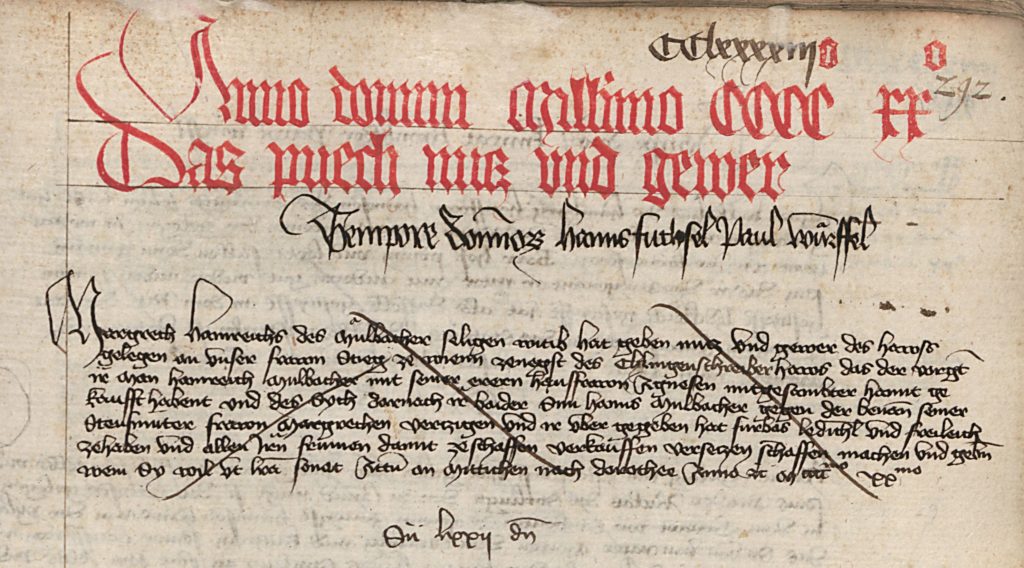 CClxxxiij o o
292.
Anno domini Millesimo CCCC xx
Das puech nutz und gewer
Tempore dominorum Hanns fuchsel Paul Würffel
Margreth Hainreichs des Mulbacher seligen witib hat geben nutz und gewer des hawss
gelegen an unser frawn Stieg ze wienn zenegst des Esslingenschreiber haws das der vorgt
ir man Hainreich Mulbacher mit seiner eeren hausfrawn Agnesen mitgesambter hannt ge
kaufft habent und des Sych darnach ir baider Sun hanns Mulbacher gegen der benen seiner
Steufmuter frawn Margrethen verczigen und ir uber gegeben hat furbas ledichl und freileich
zehaben und allen irn frumen damit ze schaffen verkauffen versetzen schaffen machen und gebn
wem Sy wil ut lra sonat Actum an Mittichen nach dorothee Anno etc xx mo
Su lxxii dn